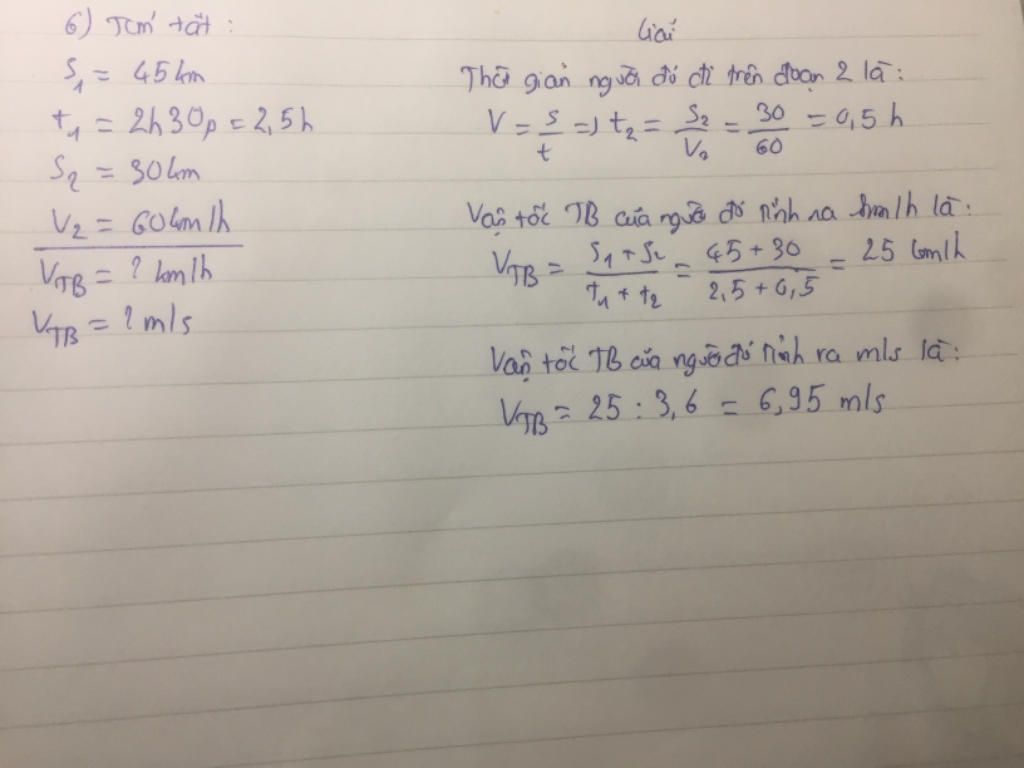 6) Tóm tắt:
S₁ = 45 km
t₁ = 2h30p = 2,5h
S₂ = 30km
V₂ = 60km/h
V_TB = ? km/h
V_TB = ? m/s
Giải
Thời gian người đó đi trên đoạn 2 là:
V = S/t => t₂ = S₂/V₂ = 30/60 = 0,5 h
Vận tốc TB của người đó tính ra km/h là:
V_TB = (S₁ + S₂)/(t₁ + t₂) = (45 + 30)/(2,5 + 0,5) = 25 km/h
Vận tốc TB của người đó tính ra m/s là:
V_TB = 25 : 3,6 = 6,95 m/s